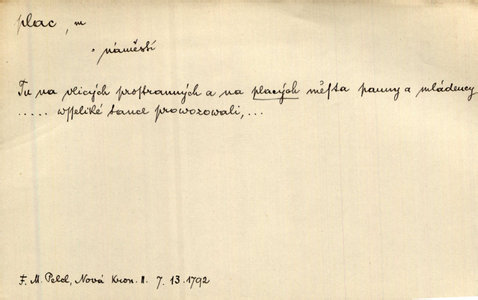 plac, m
náměstí
Tu na vlicých prostranných a na placých města panny a mládency
..... wsseliké tance prowozowali, ...
F. M. Pelcl, Nová Kron. II. 7. 13. 1792